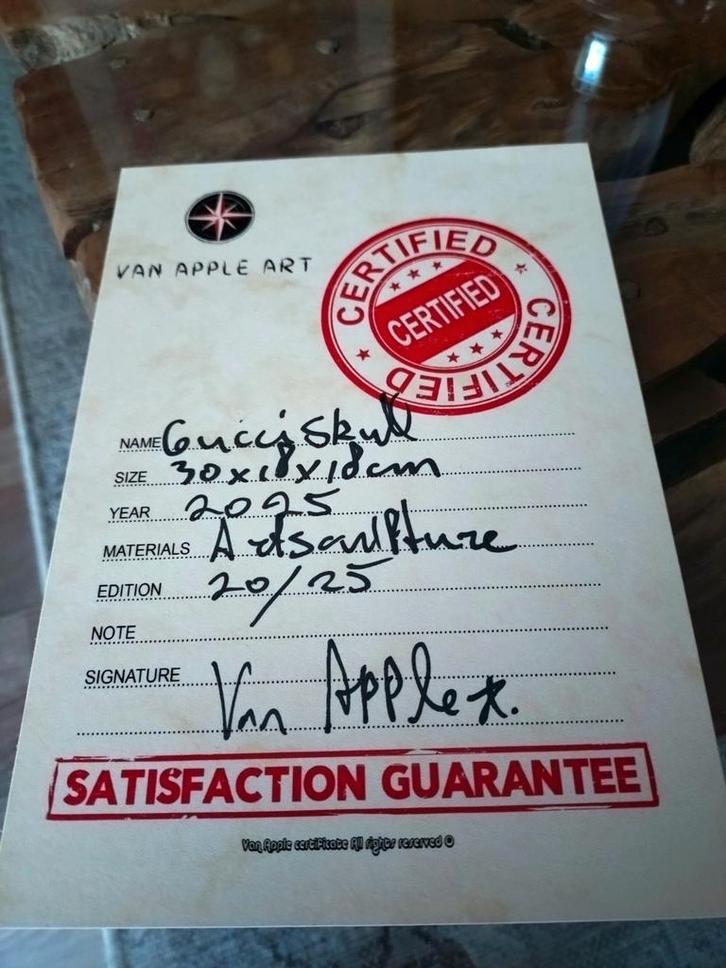 VAN APPLE ART
CERTIFIED CERTIFIED CERTIFIED
CERTIFIED
NAME Gucci Skull
SIZE 30x18x18cm
YEAR 2025
MATERIALS Artsculpture
EDITION 20/25
NOTE
SIGNATURE Van Apple
SATISFACTION GUARANTEE
Van Apple certificate All rights reserved ©